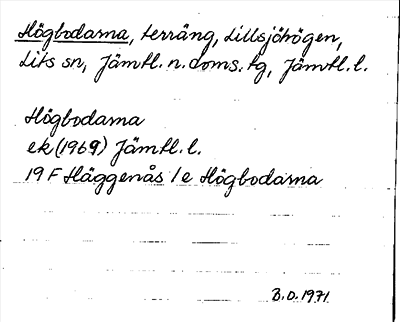 Högbodarna, terräng, Lillsjöhögen,
Lits sn, Jämtl. n. doms. tg, Jämtl. l.
Högbodarna
ek (1969) Jämtl. l.
19 F Häggenås 1e Högbodarna
B.O. 1971